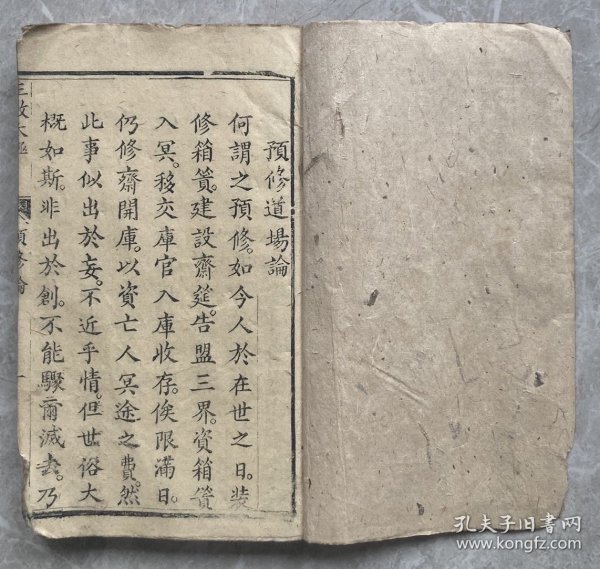 預修道場論
何謂之預修。如今人於在世之日。裝
修箱篢。建設齋筵。告盟三界。資箱篢
入冥。移交庫官入庫收存。俟限滿日。
仍修齋開庫。以資亡人冥途之費。然
此事似出於妄。不近乎情。但世俗大
概如斯。非出於創。不能驟爾滅去。乃
預修論
孔夫子旧书网
www.kongfz.com